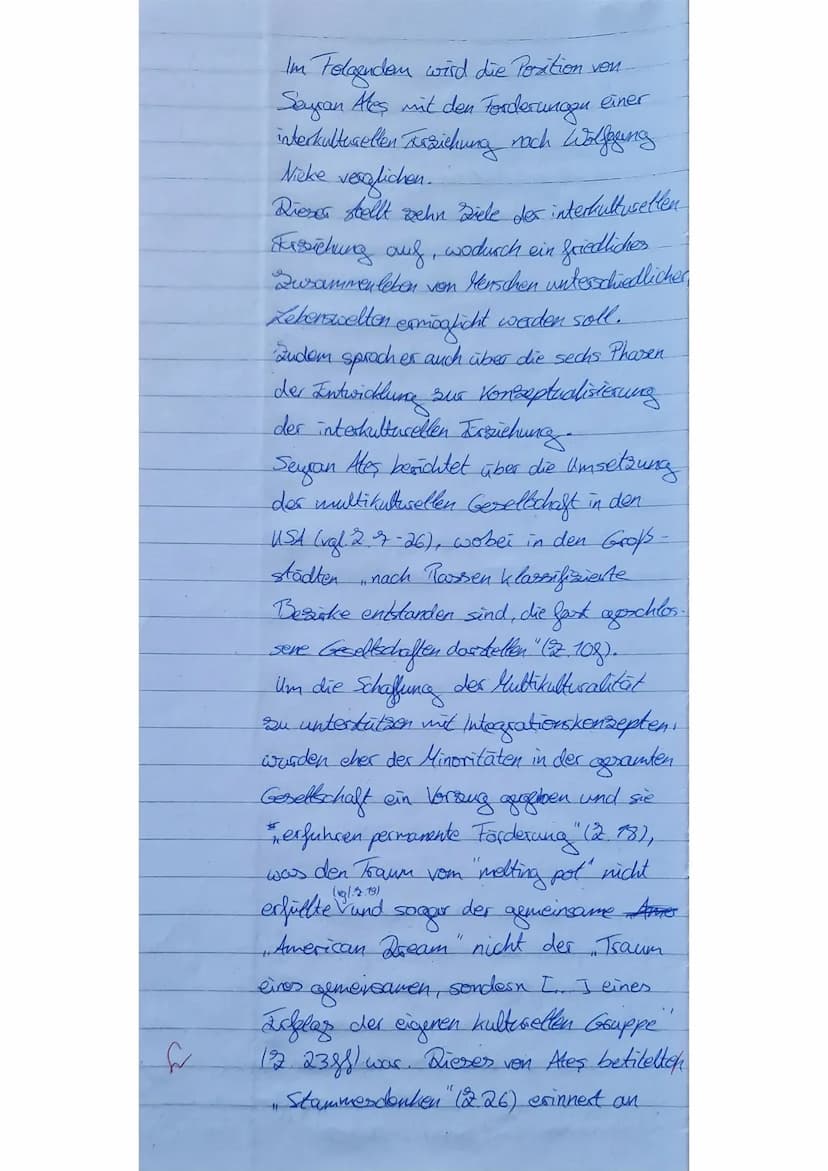 Im Folgendem wird die Position von
Seyran Ateş mit den Forderungen einer
interkulturellen Erziehung nach Wolfgang
Nieke verglichen.
Dieser stellt zehn Ziele der interkulturellen
Erziehung auf, wodurch ein friedliches
Zusammenleben von Menschen unterschiedlicher
Lebenswelten ermöglicht werden soll.
Zudem sprach er auch über die sechs Phasen
der Entwicklung zur Konzeptualisierung
der interkulturellen Erziehung.
Seyran Ateş berichtet über die Umsetzung
der multikulturellen Gesellschaft in den
USA (vgl. Z. 7-26), wobei in den Groß-
städten „nach Rassen klassifizierte
Bezirke entstanden sind, die fast geschlos-
sene Gesellschaften darstellen" (Z. 10f).
Um die Schaffung der Multikulturalität
zu unterstützen mit Integrationskonzepten,
wurden eher der Minoritäten in der gesamten
Gesellschaft ein Vorzug gegeben und sie
„erfuhren permanente Förderung" (Z. 18),
was den Traum vom "melting pot" nicht
(vgl. Z 19)
erfüllte und sogar der gemeinsame
„American Dream" nicht der „Traum
eines gemeinsamen, sondern [...] eines
Erfolgs der eigenen kulturellen Gruppe"
(Z. 23ff) war. Dieses von Ateş betitelten
„Stammesdenken" (Z. 26) erinnert an